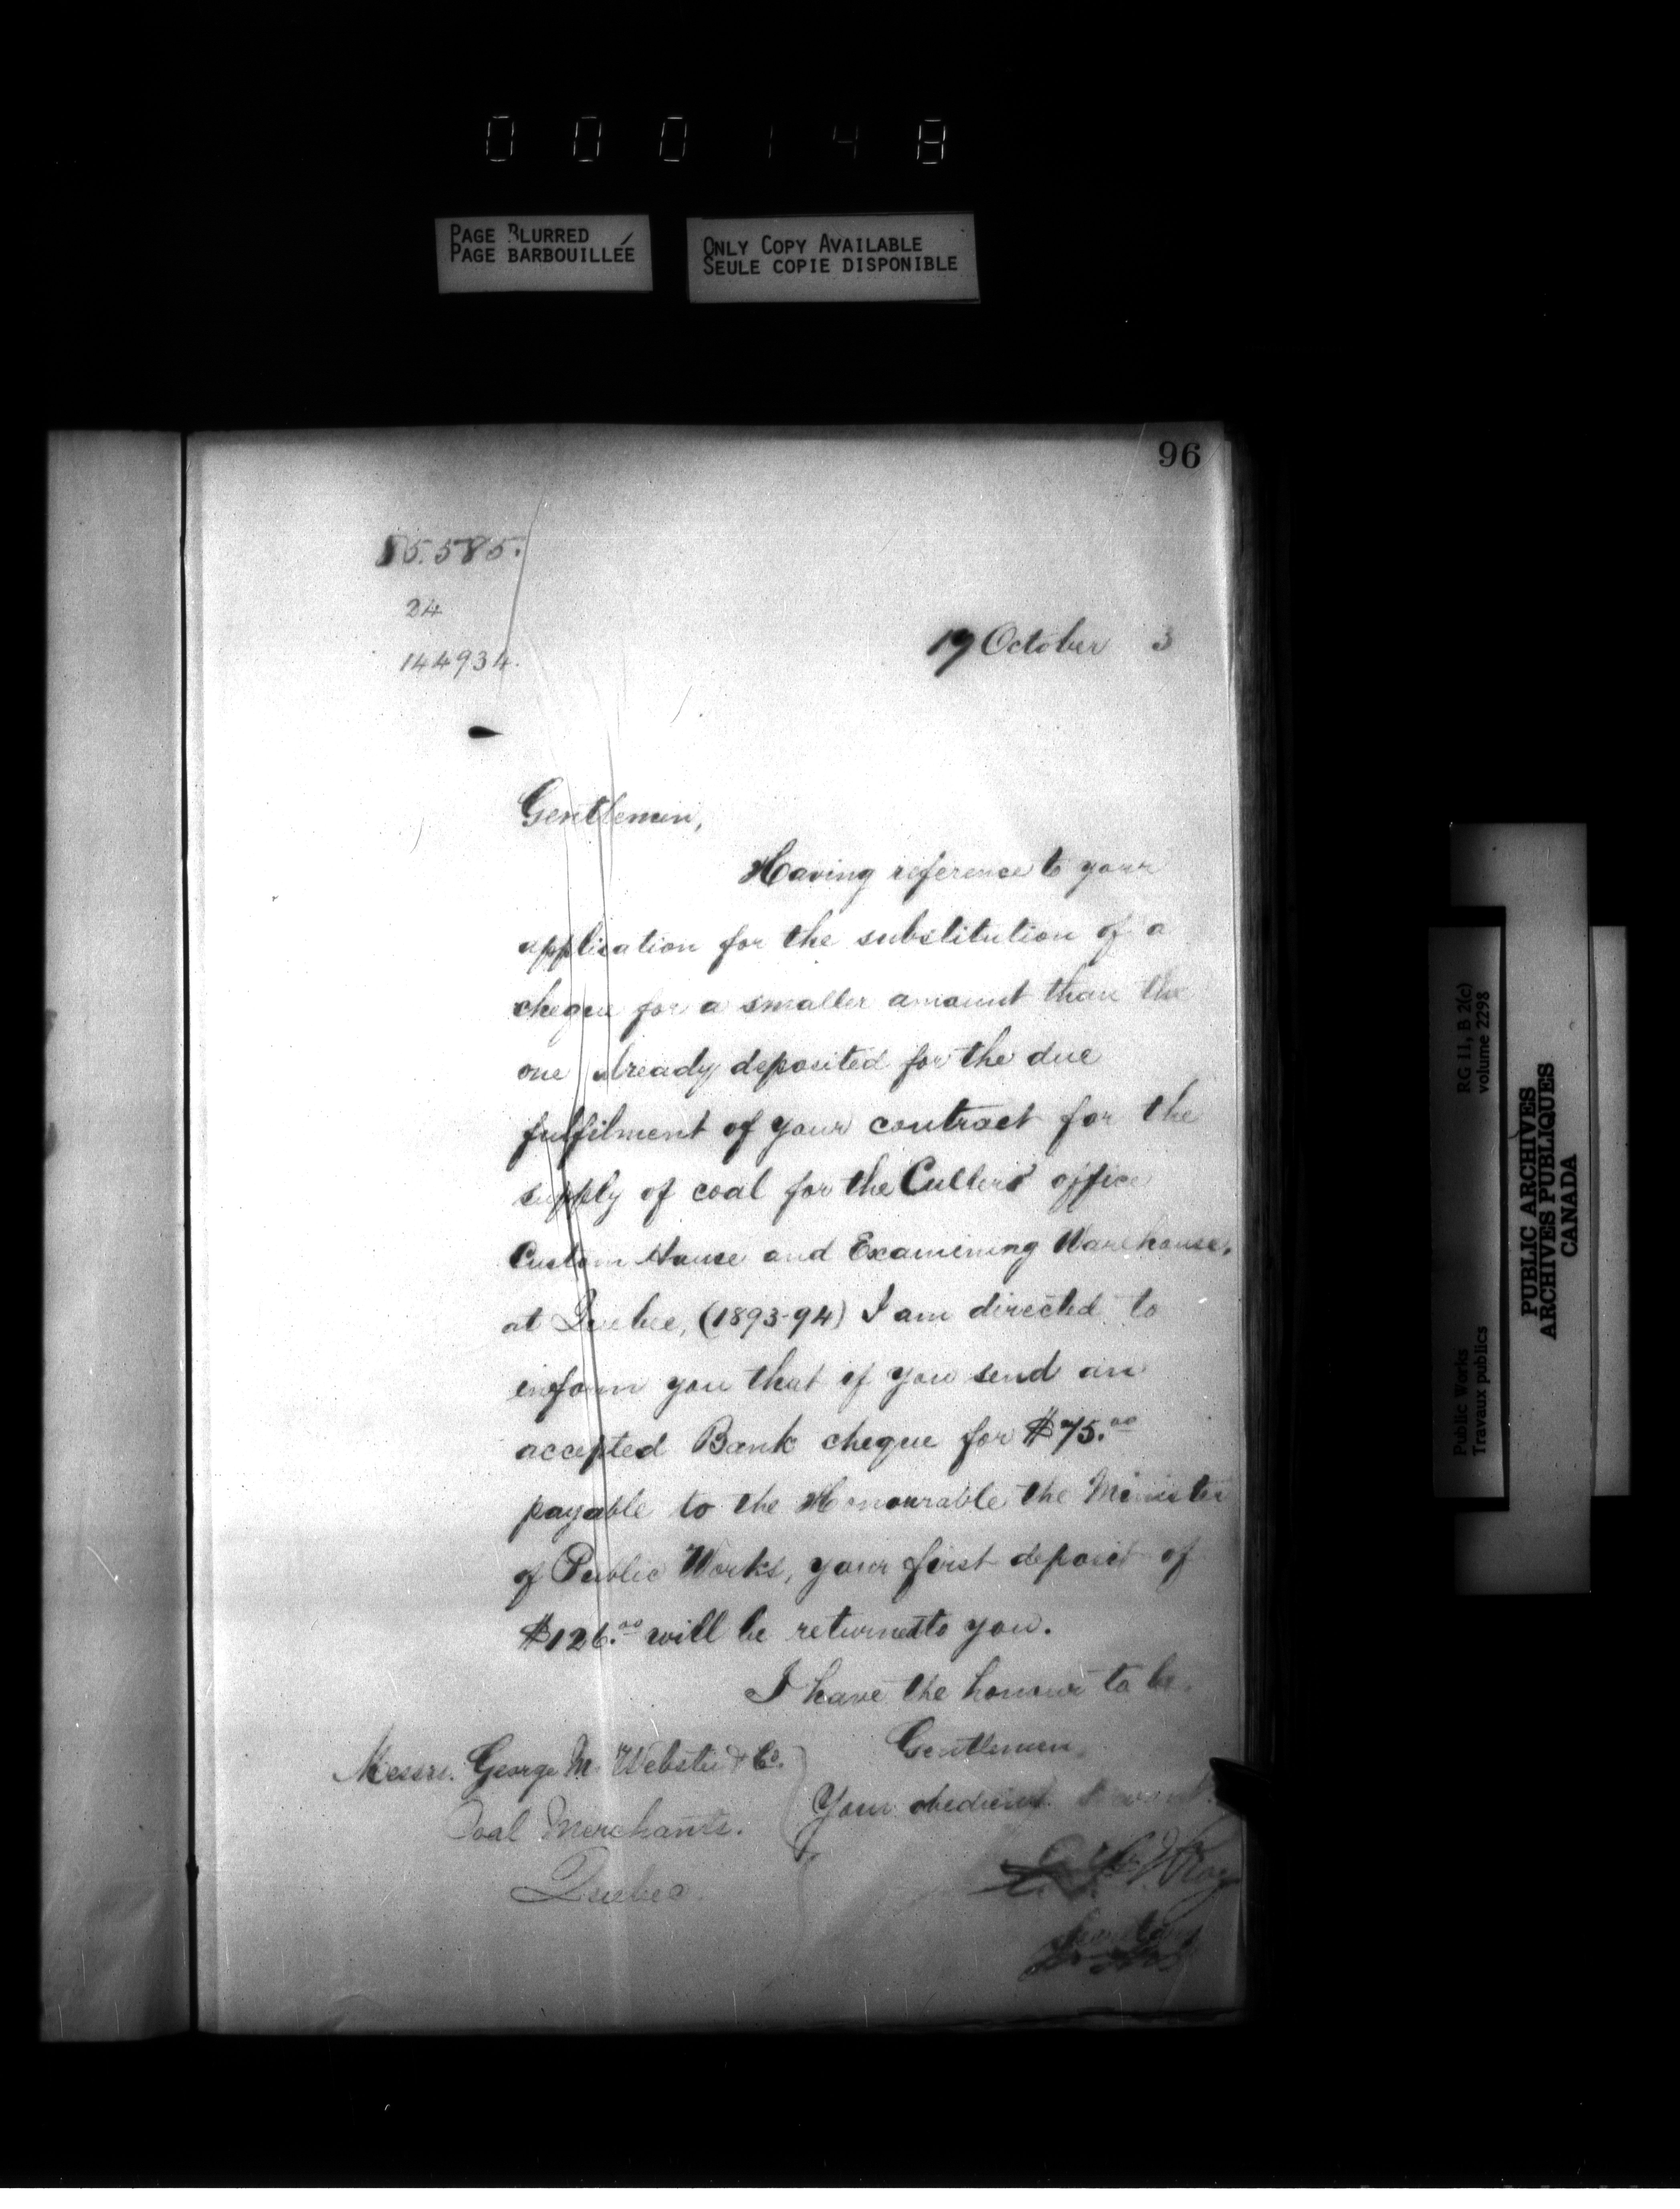 000148
PAGE BLURRED
PAGE BARBOUILLÉE
ONLY COPY AVAILABLE
SEULE COPIE DISPONIBLE
96
85.585.
24
144934.
19 October 3
Gentlemen,
Having reference to your
application for the substitution of a
cheque for a smaller amount than the
one already deposited for the due
fulfilment of your contract for the
supply of coal for the Cullers' office
Custom House and Examining Warehouse,
at Quebec, (1893-94) I am directed to
inform you that if you send an
accepted Bank cheque for $75.00
payable to the Honourable the Minister
of Public Works, your first deposit of
$126.00 will be returned to you.
I have the honour to be.
Gentlemen,
Your obedient Servant.
Messrs. George M. Webster & Co.
Coal Merchants.
Quebec.
RG 11, B 2(c)
volume 2298
Public Works
Travaux publics
PUBLIC ARCHIVES
ARCHIVES PUBLIQUES
CANADA